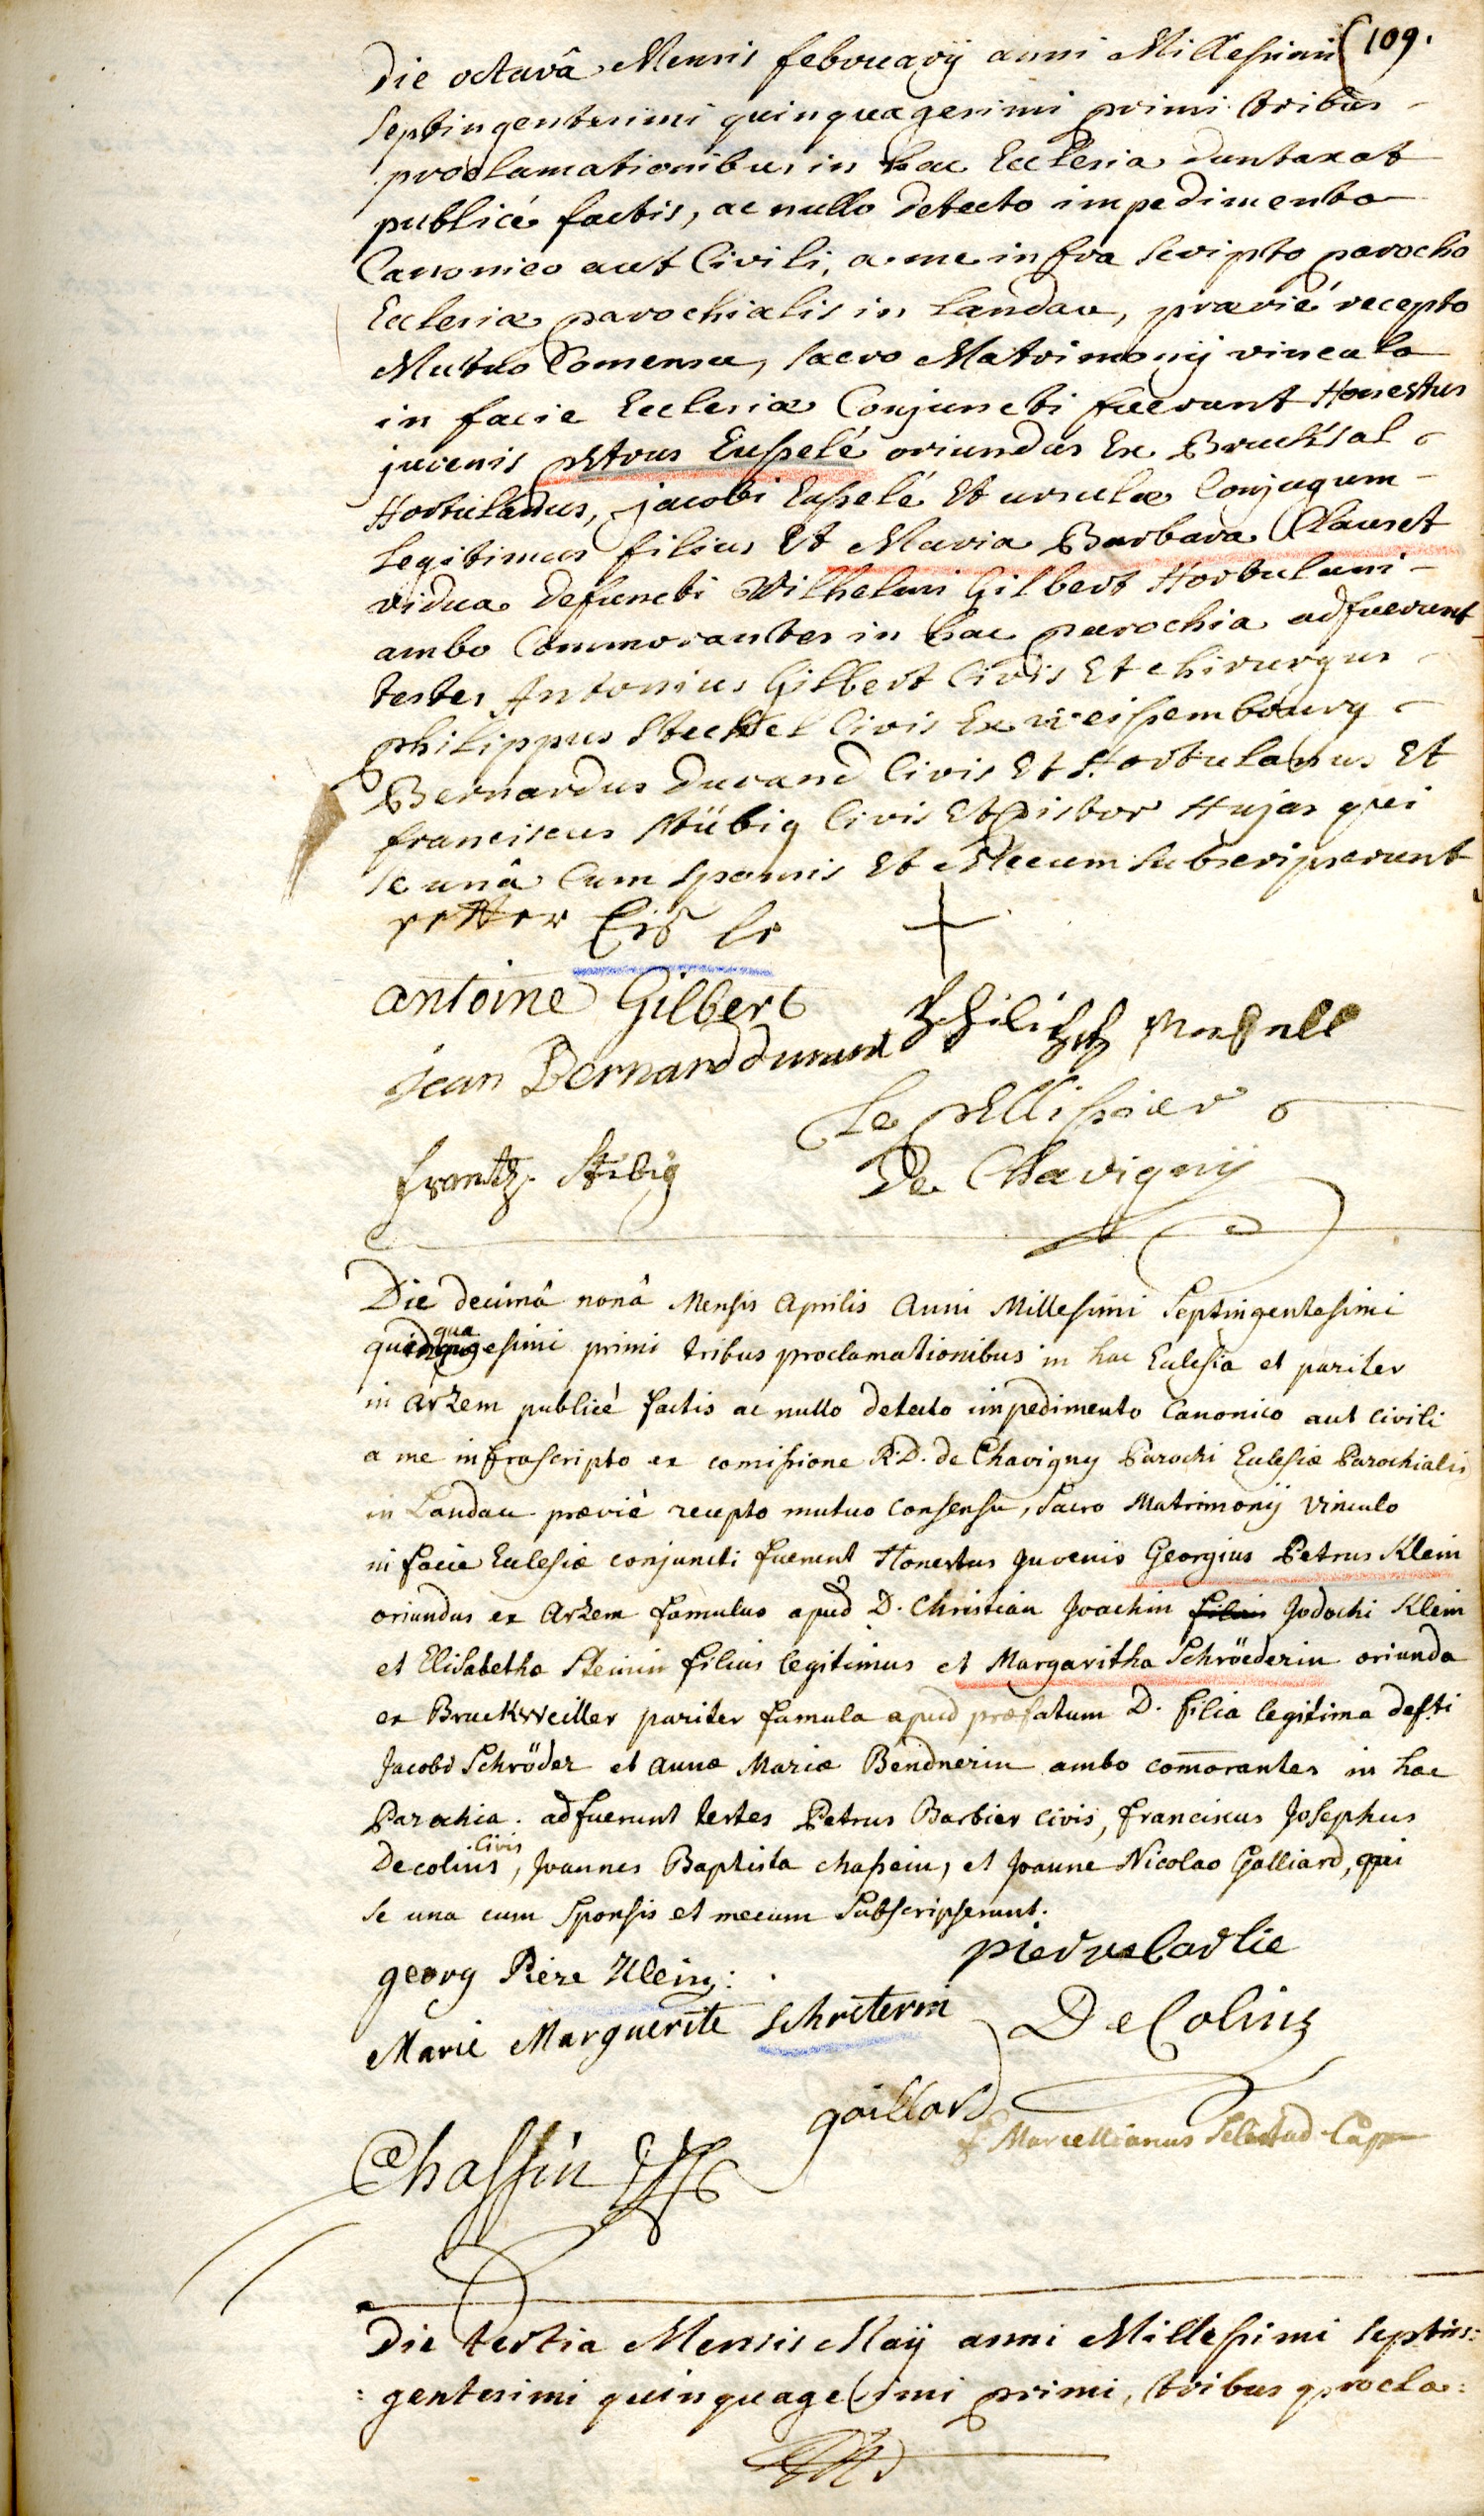 109.
Die octavâ Mensis februarÿ anni Millesimi
septingentesimi quinquagesimi primi tribus
proclamationibus in hac Ecclesia duntaxat
publicé factis, ac nullo detecto impedimento
Canonico aut Civili, a me infra scripto parocho
Ecclesiæ parochialis in Landau, prævié recepto
Mutuo Consensu, sacro Matrimonÿ vinculo
in facie Ecclesiæ Conjuncti fuerunt Honestus
juvenis petrus Eusselé oriundus Ex Bruchsal
Hortulanus, jacobi Eusselé Et ursulæ Conjugum
legitimus filius Et Maria Barbara Clauset
vidua defuncti Wilhelmi Gilbert Hortulani
ambo Commorantes in hac parochia adfuerunt
testes Antonius Gilbert Civis Et chirurgus
philippus Civis Ex weissembourg
Bernardus durand Civis Et Hortulanus Et
franciscus Stübig Civis Et pistor Hujas qui
se unâ Cum sponsis Et Mecum subscripserunt
petter Eis le +
antoine Gilbert
jean Bernard durand
Le pellissier
frantz Stibig De Chavignÿ
Die decimâ nonâ Mensis Aprilis Anni Millesimi Septingentesimi
qua
quinquagesimi primi tribus proclamationibus in hac Eclesia et pariter
in Arzem publicé factis ac nullo detecto impedimento Canonico aut Civili
a me infrascripto ex comissione R.D. de Chavigny Parochi Eclesiæ Parochialis
in Landau prævié recepto mutuo Consensu, Sacro Matrimonÿ vinculo
in facie Eclesiæ conjuncti fuerunt Honestus Juvenis Georgius Petrus Klein
oriundus ex Arzem famulus apud D. Christian Joachin filius Jodochi Klein
et Elisabetha Steinin filius legitimus et Margaritha Schröederin oriunda
ex Bruckweiller pariter famula apud præfatum D. filia legitima defti
Jacobi Schröder et Annæ Mariæ Bendnerin ambo comorantes in hac
Parochia. adfuerunt testes Petrus Barbier civis, franciscus Josephus
civis
Decolins, Joannes Baptista chassein, et Joanne Nicolao Galliard, qui
se una cum Sponsis et mecum Subscripserunt.
georg Piere Klein: pierre Carlie
Marie Marguerite Schreterin DeColins
gaillard
f Marcellianus Cap
Chassin
Die tertia Mensis Maÿ anni Millesimi septin:
:gentesimi quinquagesimi primi, tribus procla: